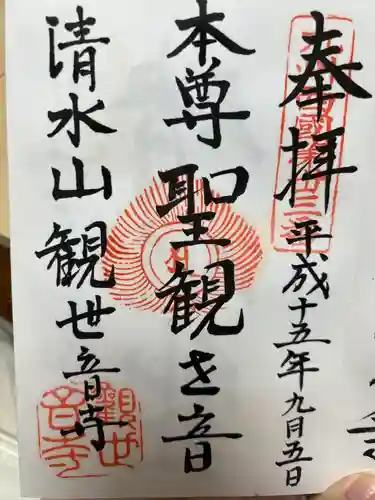 奉拝
平成十五年九月五日
本尊
聖観世音
清水山観世音寺
観世
音寺